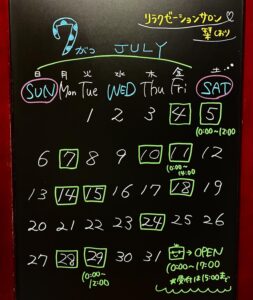 リラクゼーションサロン♡
栞しおり
7がつ JULY
日 月 火 水 木 金 土
SUN Mon Tue WED Thu Fri SAT
1 2 3 4 5
10:00~12:00
6 7 8 9 10 11 12
10:00~14:00
13 14 15 16 17 18 19
20 21 22 23 24 25 26
27 28 29 30 31 →OPEN
10:00~12:00
10:00~17:00
※受付は15:00まで